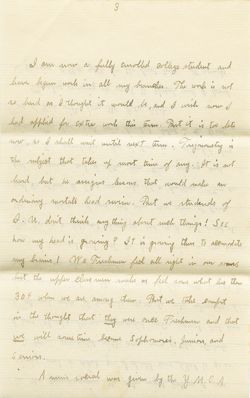 3
I am now a fully enrolled college student and
have begun work in all my branches. The work is not
so hard as I thought it would be, and I wish now I
had applied for extra work this term. But it is too late
now, so I shall wait until next term. Trigonometry is
the subject that takes up most time of any. It is not
hard, but he assigns lessons that would make an
ordinary mortals head swim. But we students of
O. U. don't think anything about such things! See
how my head is growing? It is growing thus to accomodate
my brains! We Freshmen feel all right in our rooms
but the upper classmen make us feel some what like
30¢ when we are among them. But we take comfort
in the thought that they were once Freshmen and that
we will sometime become Sophomores, juniors, and
seniors.
A was given by the Y. M. C. A.